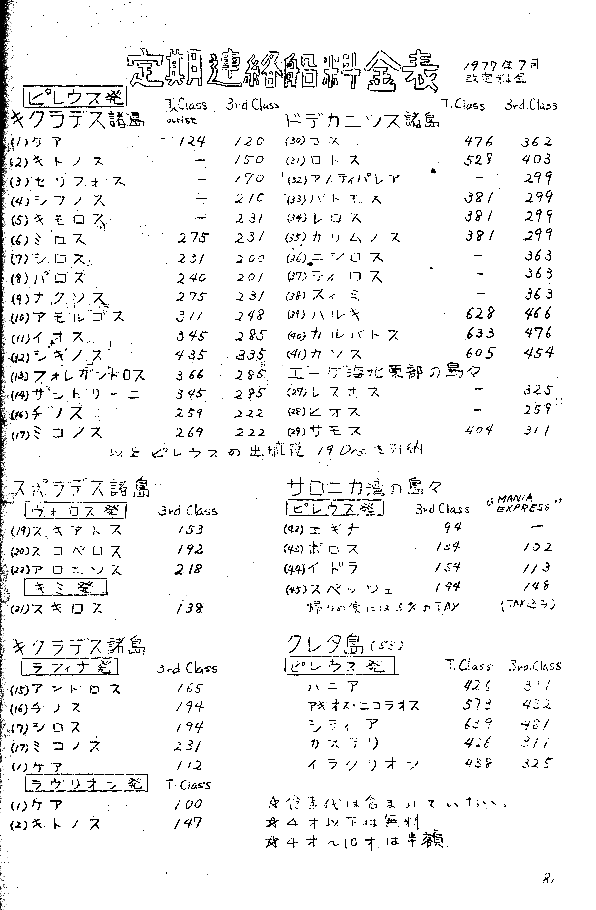 定期連絡船料金表
1977年7月
改定料金
ピレウス発
T.Class 3rd Class
キクラデス諸島
(1) ケア 124 120
(2) キトノス - 150
(3) セリフォス - 170
(4) シフノス - 210
(5) キモロス - 231
(6) ミロス 275 231
(7) シロス 231 200
(8) パロス 240 201
(9) ナクソス 275 231
(10) アモルゴス 311 248
(11) イオス 345 285
(12) シキノス 435 335
(13) フォレガンドロス 366 285
(14) サントリーニ 345 285
(16) チノス 259 222
(17) ミコノス 269 222
T.Class 3rd.Class
ドデカニソス諸島
(30) コス 476 362
(31) ロドス 528 403
(32) - 299
(33) パトモス 381 299
(34) レロス 381 299
(35) カリムノス 381 299
(36) ニシロス - 363
(37) ティロス - 363
(38) スィミ - 363
(39) ハルキ 628 466
(40) カルパトス 633 476
(41) カソス 605 454
エーゲ海北東部の島々
(27) レスボス - 325
(28) ヒオス - 259
(29) サモス 404 311
以上ピレウスの出域税 19Drs.
スポラデス諸島
ヴォロス発 3rd Class
(19) スキアトス 153
(20) スコペロス 192
(22) アロニソス 218
キミ発
(21) スキロス 138
サロニカ湾の島々
ピレウス発 3rd Class "MANIA EXPRESS"
(42) エギナ 94 -
(43) ポロス 134 102
(44) イドラ 154 113
(45) スペッツェ 194 148
キクラデス諸島
ラフィナ発 3rd Class
(15) アンドロス 165
(16) チノス 194
(7) シロス 194
(17) ミコノス 231
(1) ケア 112
ラヴリオン発 T.Class
(1) ケア 100
(2) キトノス 147
クレタ島 (53)
ピレウス発 T.Class 3rd.Class
ハニア 426 311
アギオス・ニコラオス 573 432
シティア 639 481
カステリ 426 311
イラクリオン 438 325
☆食事代は含まれていない。
☆4才以下は無料
☆4才〜10才は半額